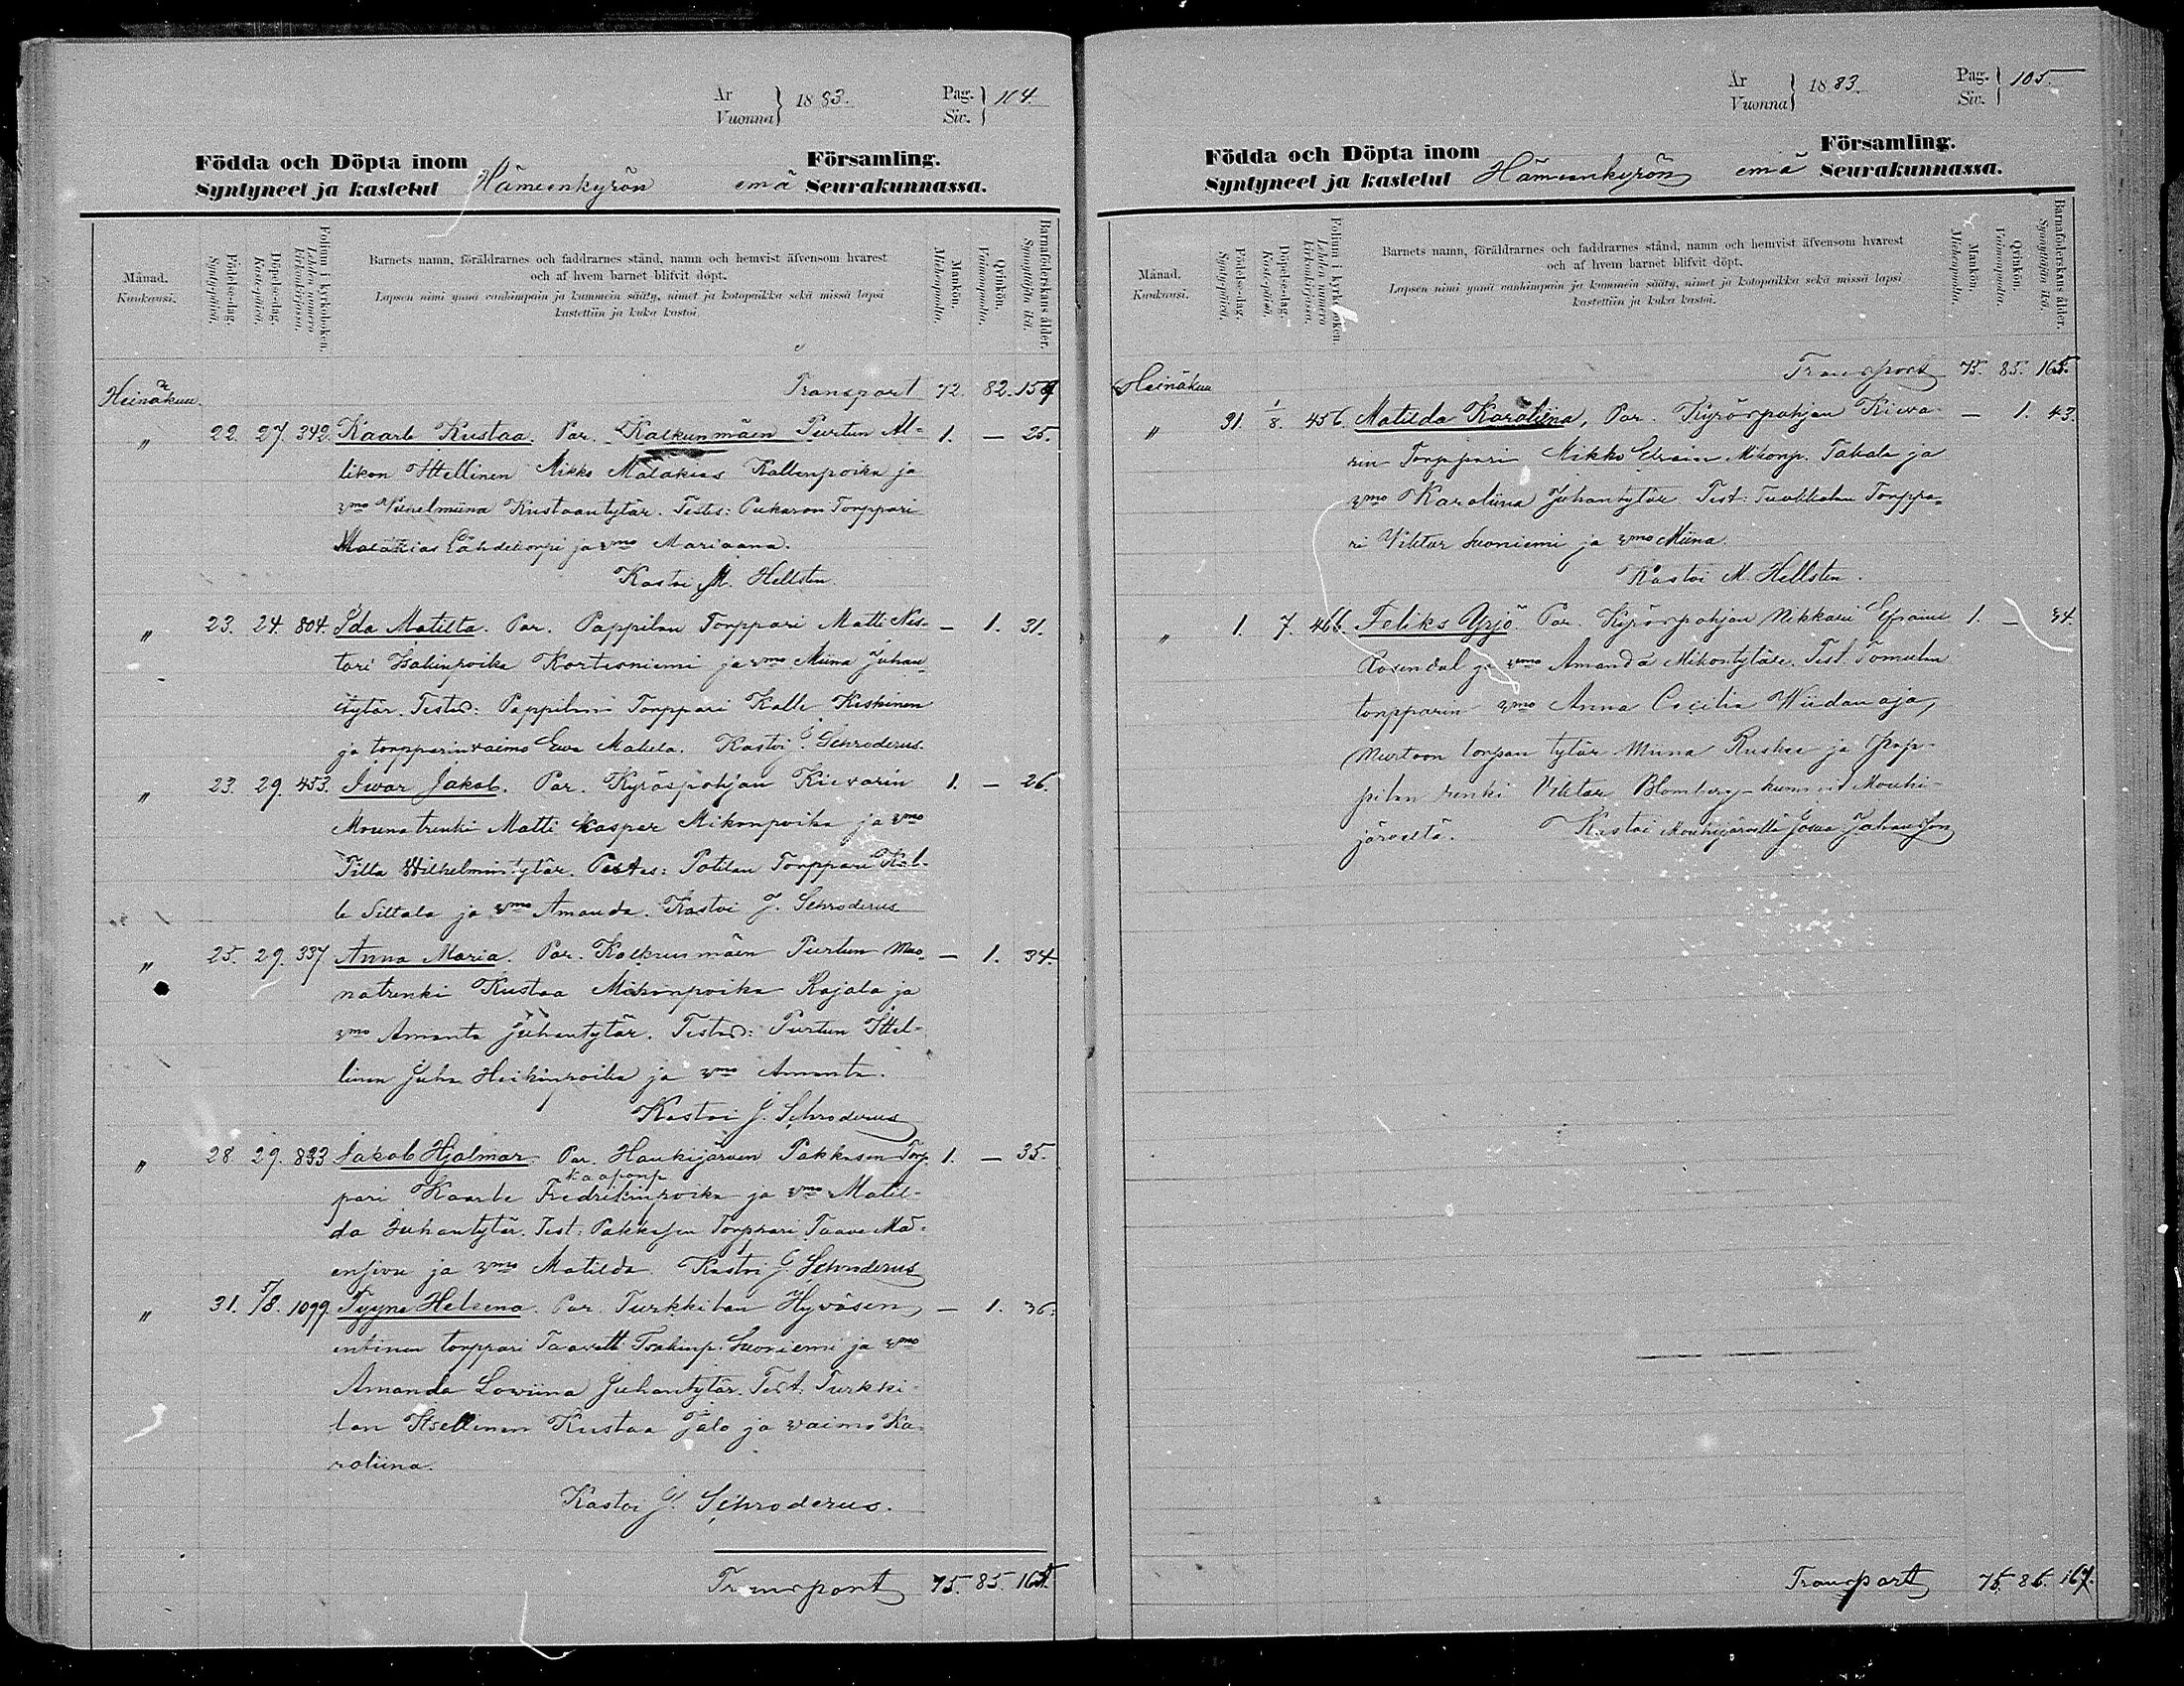 År
Vuonna } 1883.
Pag.
Siv. } 104.
Födda och Döpta inom Församling.
Syntyneet ja kastetut Hämeenkyrön emä Seurakunnassa.
Månad.
Kuukausi.
Födelse-dag.
Syntypäivä.
Döpelse-dag.
Kaste-päivä.
Folium i kyrkoboken.
Lehden numero kirkonkirjassa.
Barnets namn, föräldrarnes och faddrarnes stånd, namn och hemvist äfvensom hvarest
och af hvem barnet blifvit döpt.
Lapsen nimi ynnä vanhimpain ja kummein sääty, nimet ja kotopaikka sekä missä lapsi
kastettiin ja kuka kastoi.
Mankön.
Miehenpuolia.
Qvinkön.
Vaimonpuolia.
Barnaföderskans ålder.
Synnyttäjän ikä.
Heinäkuu. Transport 72. 82. 159
" 22. 27. 342. Kaarle Kustaa. Par. Kalkunmäen Purtun Al- 1. — 25.
likon Ittellinen Mikko Malakias Kallenpoika ja
vmo Vilhelmiina Kustaantytär. Testes: Torppari
Malakias Lähdekorpi ja vmo Mariaana.
Kastoi M. Hellsten.
" 23. 24. 804. Ida Matilta. Par. Pappilan Torppari Matti Nes- — 1. 31.
tori Isakinpoika Kortesniemi ja vmo Miina Juhan
tytär. Testes: Pappilan Torppari Kalle Keskinen
ja torpparinvaimo Ewa Makela. Kastoi J. Schroderus.
" 23. 29. 453. Iwar Jakob. Par. Kyröspohjan Kievarin 1. — 26.
Muona trenki Matti Kasper Mikonpoika ja vmo
Tilta Wilhelmintytär. Testes: Potilan Torppari Kal-
le Siltala ja vmo Amanda. Kastoi J. Schroderus
" 25. 29. 337 Anna Maria. Par. Kalkunmäen Purtun Muo- — 1. 34.
natrenki Kustaa Mikonpoika Rajala ja
vmo Amanta Juhantytär. Testes: Purtun Ittel-
linen Juha Heikinpoika ja vmo Amanta.
Kastoi J. Schroderus
" 28. 29. 833 Jakob Hjalmar. Par. Haukijärven Pakkasen Torp- 1. — 35.
Kaaponp
pari Kaarle Fredrikinpoika ja vmo Matil-
da Juhantytär. Test: Pakkasen Torppari Taave Mä-
ensivu ja vmo Matilda. Kastoi J. Schroderus
" 31. 5/8. 1099. Tyyne Heleena. Par. Turkkilan Hyväsen — 1. 36.
entinen torppari Taavetti Isakinp. Suoniemi ja vmo
Amanda Loviina Juhantytär. Test. Turkki-
lan Itsellinen Kustaa Jalo ja vaimo Ka-
roliina.
Kastoi J. Schroderus.
Transport 75. 85. 165.
År
Vuonna } 1883.
Pag.
Siv. } 105.
Födda och Döpta inom Församling.
Syntyneet ja kastetut Hämeenkyrön emä Seurakunnassa.
Månad.
Kuukausi.
Födelse-dag.
Syntypäivä.
Döpelse-dag.
Kaste-päivä.
Folium i kyrkoboken.
Lehden numero kirkonkirjassa.
Barnets namn, föräldrarnes och faddrarnes stånd, namn och hemvist äfvensom hvarest
och af hvem barnet blifvit döpt.
Lapsen nimi ynnä vanhimpain ja kummein sääty, nimet ja kotopaikka sekä missä lapsi
kastettiin ja kuka kastoi.
Mankön.
Miehenpuolia.
Qvinkön.
Vaimonpuolia.
Barnaföderskans ålder.
Synnyttäjän ikä.
Heinäkuu Transport 75. 85. 165.
" 31. 1/8. 456. Matilda Karoliina, Par. Kyröspohjan Kieva- — 1. 43.
rin Torppari Mikko Efraim Mikonp. Takala ja
vmo Karoliina Juhantytär Test: Torppa-
ri Viktor Suoniemi ja vmo Miina.
Kastoi M. Hellsten.
" 1. 7. 466. Feliks Yrjö. Par. Kyröspohjan Nikkari Efraim 1. — 34.
Rosendal ja vmo Amanda Mikontytär. Test.
torpparin vmo Anna Cecilia Wiidanoja,
Murtoon torpan tytär Miina Ruskee ja Pap-
pilan renki Viktor Blomberg — kummit Mouhi-
järveltä. Kastoi Mouhijärvellä Josua Johansson
Transport 76. 86. 167.